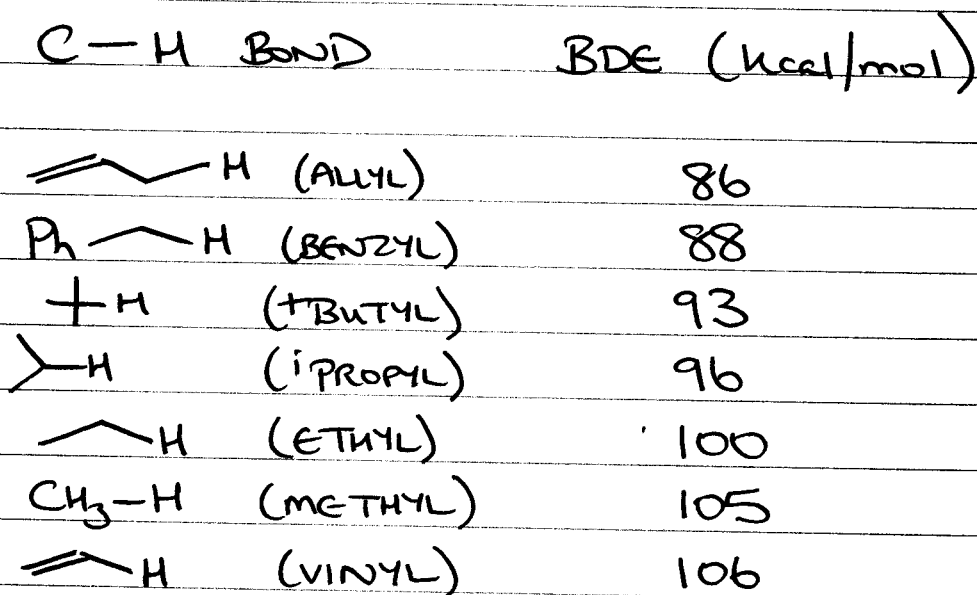 C—H BOND BDE (kcal/mol)
H (ALLYL) 86
Ph H (BENZYL) 88
H (tBUTYL) 93
H (iPROPYL) 96
H (ETHYL) 100
CH₃—H (METHYL) 105
H (VINYL) 106